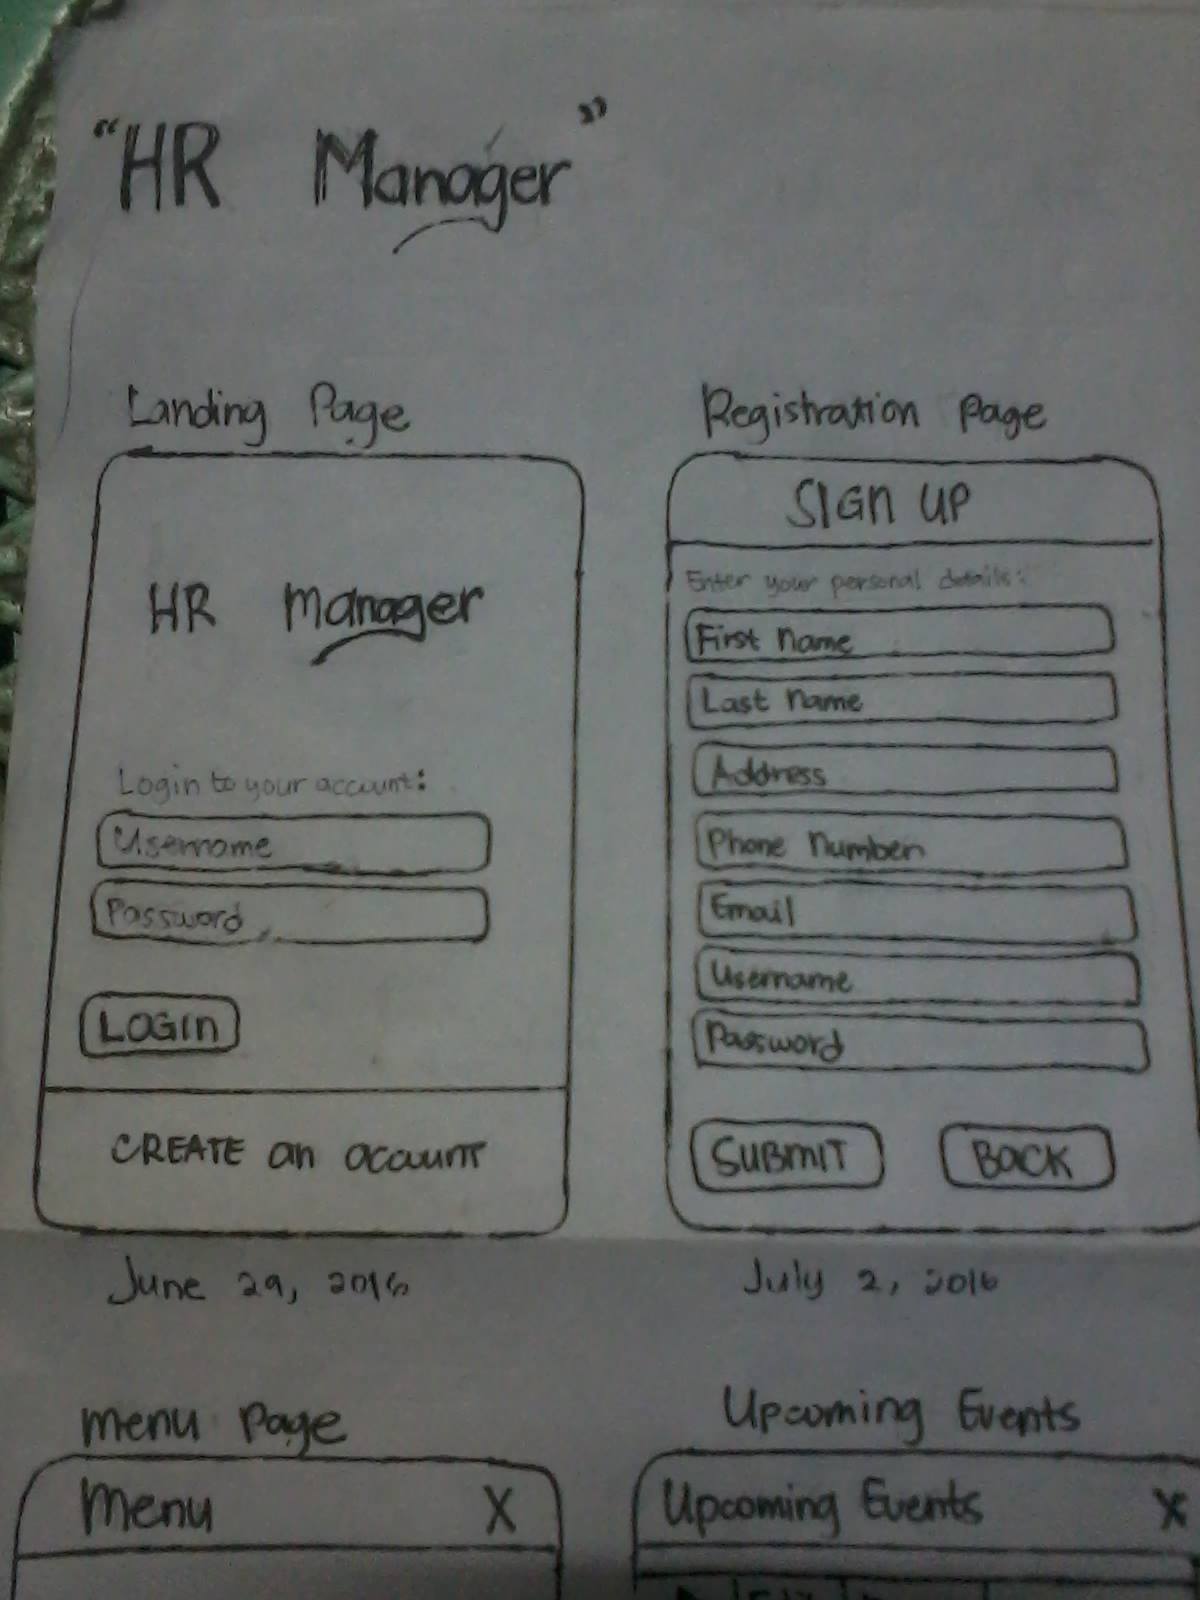 "HR Manager"
Landing Page
HR Manager
Login to your account:
Username
Password
LOGIN
CREATE an account
June 29, 2016
Registration Page
SIGN UP
Enter your personal details:
First Name
Last Name
Address
Phone Number
Email
Username
Password
SUBMIT
BACK
July 2, 2016
Menu Page
Menu X
Upcoming Events
Upcoming Events X